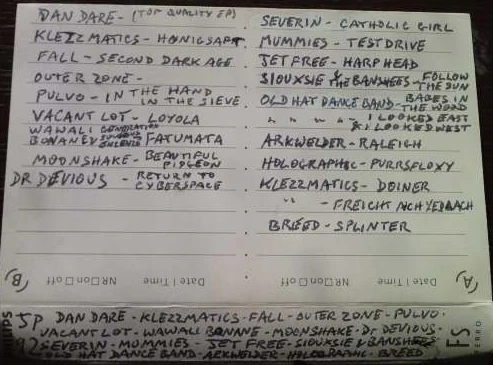 DAN DARE - (TOP QUALITY EP)
KLEZZMATICS - HONIGSAFT.
FALL - SECOND DARK AGE
OUTER ZONE -
PULVO - IN THE HAND
IN THE SIEVE
VACANT LOT - LOYOLA
WAWALI
BONANE FATUMATA
MOONSHAKE - BEAUTIFUL
PIGEON
DR DEVIOUS - RETURN TO
CYBERSPACE
(B) NR □ on □ off Date | Time
SEVERIN - CATHOLIC GIRL
MUMMIES - TEST DRIVE
JET FREE - HARP HEAD
SIOUXSIE & THE BANSHEES - FOLLOW
THE SUN
OLD HAT DANCE BAND - BABES IN
THE WOOD
" " " " - I LOOKED EAST
& I LOOKED WEST
ARKWELDER - RALEIGH
HOLOGRAPHIC - PURRSFLOXY
KLEZZMATICS - DOINER
" - FREICHT
BREED - SPLINTER
NR □ on □ off Date | Time (A)
5P DAN DARE · KLEZZMATICS · FALL · OUTER ZONE · PULVO ·
VACANT LOT · WAWALI BONANE · MOONSHAKE · Dr DEVIOUS ·
92 SEVERIN · MOMMIES · JET FREE · SIOUXSIE & BANSHEES
OLD HAT DANCE BAND · ARKWELDER · HOLOGRAPHIC · BREED
FS
FERRO